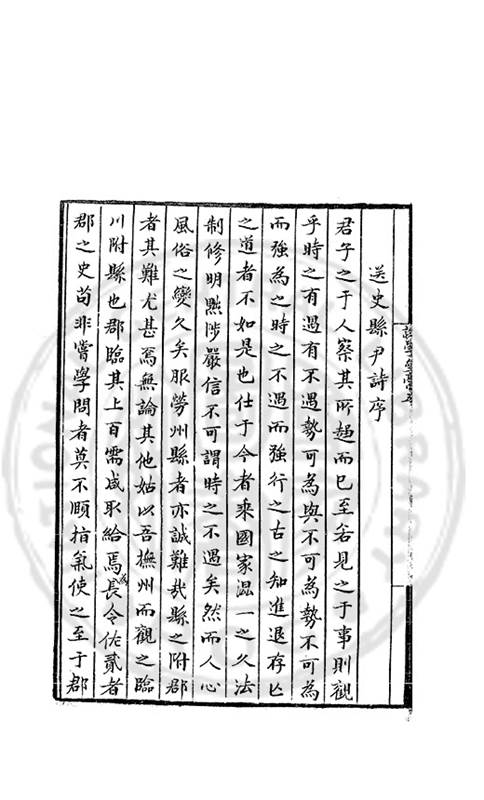 送史縣尹詩序
君子之于人察其所趨而已至若見之于事則觀
乎時之有遇有不遇勢可為與不可為勢不可為
而強為之時之不遇而強行之古之知進退存亡
之道者不如是也仕于今者乘國家混一之久法
制修明黜陟嚴信不可謂時之不遇矣然而人心
風俗之變久矣服勞州縣者亦誠難哉縣之附郡
者其難尤甚焉無論其他姑以吾撫州而觀之臨
川附縣也郡臨其上百需咸取給焉為長令佐貳者
郡之史苟非嘗學問者莫不頤指氣使之至于郡